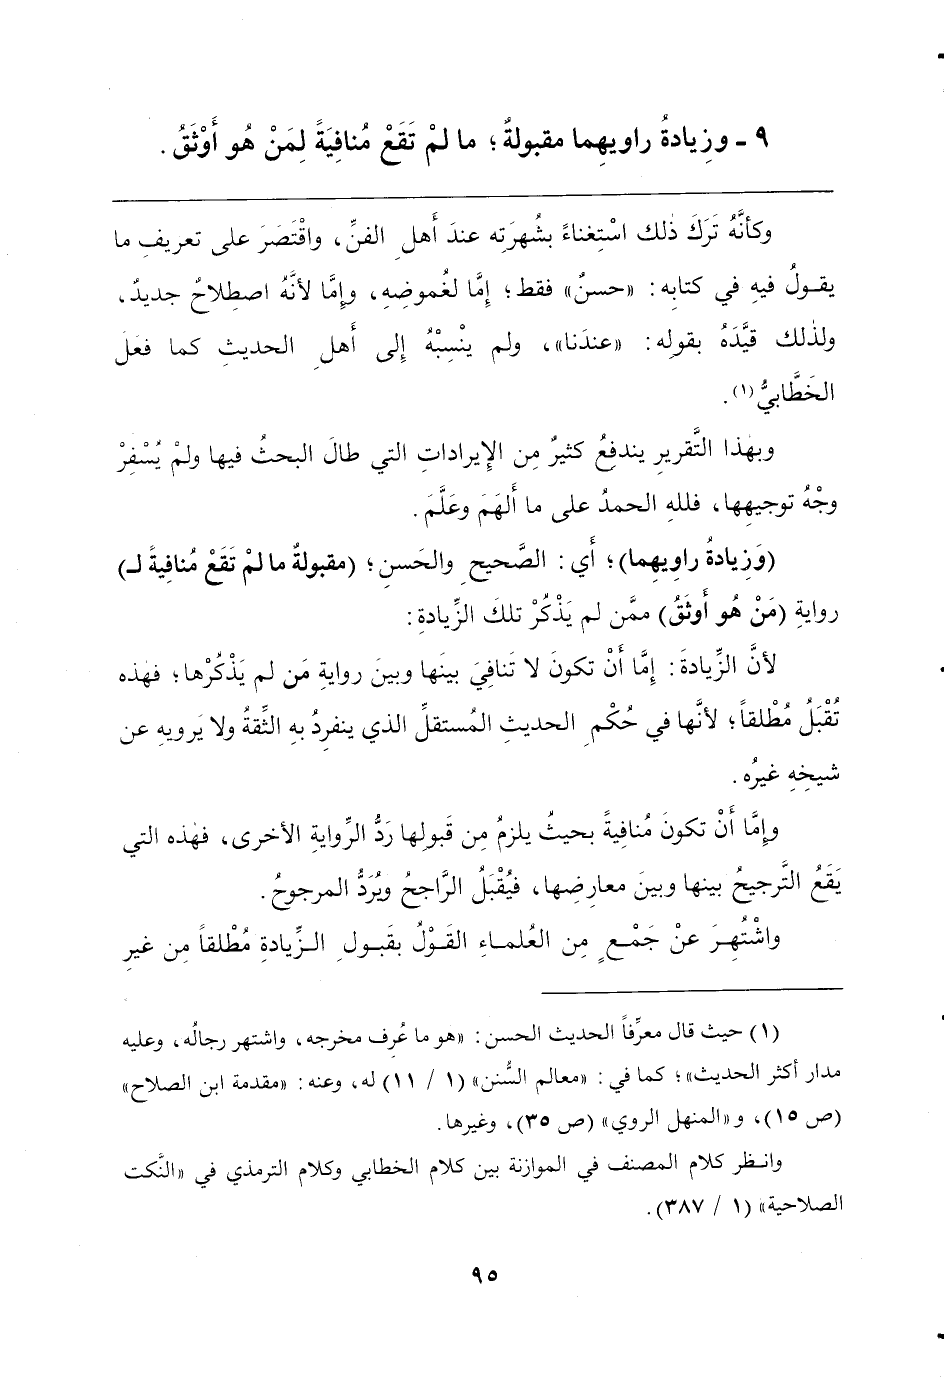 ٩ ـ وزِيادةُ راويهِما مقبولةٌ؛ ما لمْ تَقَعْ مُنافِيَةً لِمَنْ هُو أَوْثَقُ.
وكأنَّهُ تَرَكَ ذٰلك اسْتِغناءً بشُهرَتِه عندَ أَهلِ الفنِّ، واقْتَصَرَ على تعريفِ ما
يقـولُ فيهِ في كتابِه: «حسنٌ» فقط؛ إِمَّا لغُموضِهِ، وإِمَّا لأنَّهُ اصطِلاحٌ جديدٌ،
ولذٰلك قيَّدَهُ بقولِه: «عندَنا»، ولم ينْسِبْهُ إِلى أَهلِ الحديثِ كما فعَلَ
الخَطَّابيُّ(١).
وبهٰذا التَّقريرِ يندفعُ كثيرٌ مِن الإِيراداتِ التي طالَ البحثُ فيها ولمْ يُسْفِرْ
وجْهُ توجيهِها، فللهِ الحمدُ على ما أَلهَمَ وعَلَّمَ.
(وَزِيادةُ راوِيهما)؛ أَي: الصَّحيحِ والحَسنِ؛ (مقبولةٌ ما لمْ تَقَعْ مُنافِيةً لـ)
روايةِ (مَنْ هُو أَوثَقُ) ممَّن لم يَذْكُرْ تلكَ الزِّيادةِ:
لأنَّ الزِّيادةَ: إِمَّا أَنْ تكونَ لا تَنافِيَ بينَها وبينَ روايةِ مَن لم يَذْكُرْها؛ فهٰذه
تُقْبَلُ مُطْلقاً؛ لأنَّها في حُكْمِ الحديثِ المُستقلِّ الذي ينفرِدُ بهِ الثِّقةُ ولا يَرويهِ عن
شيخِهِ غيرُه.
وإِمَّا أَنْ تكونَ مُنافيةً بحيثُ يلزمُ مِن قَبولِها رَدُّ الرِّوايةِ الأخرى، فهٰذه التي
يَقَعُ التَّرجيحُ بينها وبينَ معارِضِها، فيُقْبَلُ الرَّاجحُ ويُرَدُّ المرجوحُ.
واشْتُهِرَ عنْ جَمْعٍ مِن العُلمـاءِ القَـوْلُ بقَبـولِ الـزِّيادةِ مُطْلقاً مِن غيرِ
(١) حيث قال معرِّفاً الحديث الحسن: «هو ما عُرِف مخرجه، واشتهر رجالُه، وعليه
مدار أكثر الحديث»؛ كما في: «معالم السُّنن» (١ / ١١) له، وعنه: «مقدمة ابن الصلاح»
(ص ١٥)، و «المنهل الروي» (ص ٣٥)، وغيرها.
وانـظر كلام المصنف في الموازنة بين كلام الخطابي وكلام الترمذي في «النَّكت
الصلاحية» (١ / ٣٨٧).
٩٥